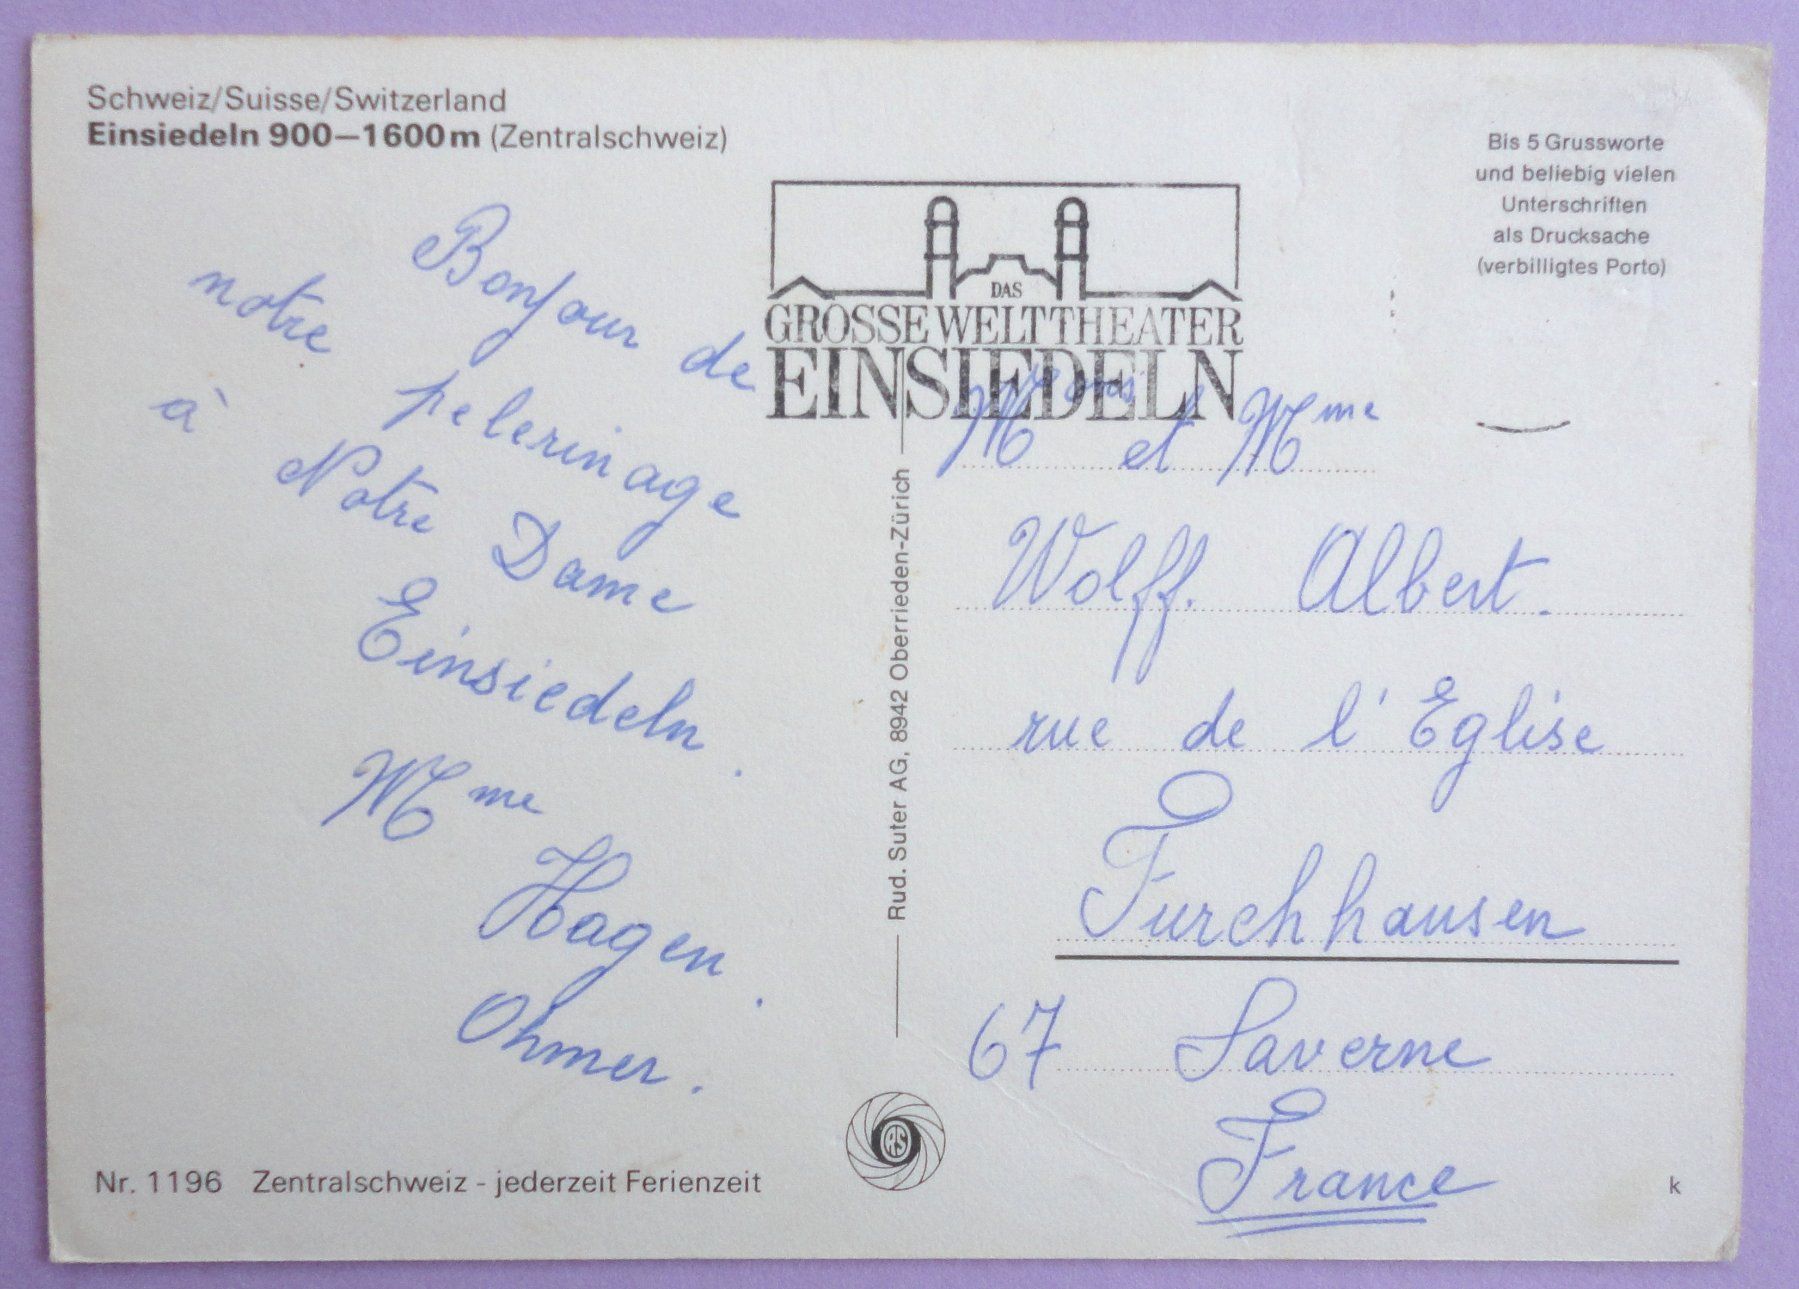 Schweiz/Suisse/Switzerland
Einsiedeln 900–1600m (Zentralschweiz)
Bis 5 Grussworte
und beliebig vielen
Unterschriften
als Drucksache
(verbilligtes Porto)
DAS
GROSSE WELTTHEATER
EINSIEDELN
Bonjour de
notre pelerinage
à Notre Dame
Einsiedeln.
Mme
Hagen.
Ohmer.
Rud. Suter AG, 8942 Oberrieden-Zürich
M et Mme
Wolff. Albert.
rue de l'Eglise
Furchhausen
67 Saverne
France
RS
Nr. 1196 Zentralschweiz - jederzeit Ferienzeit
k